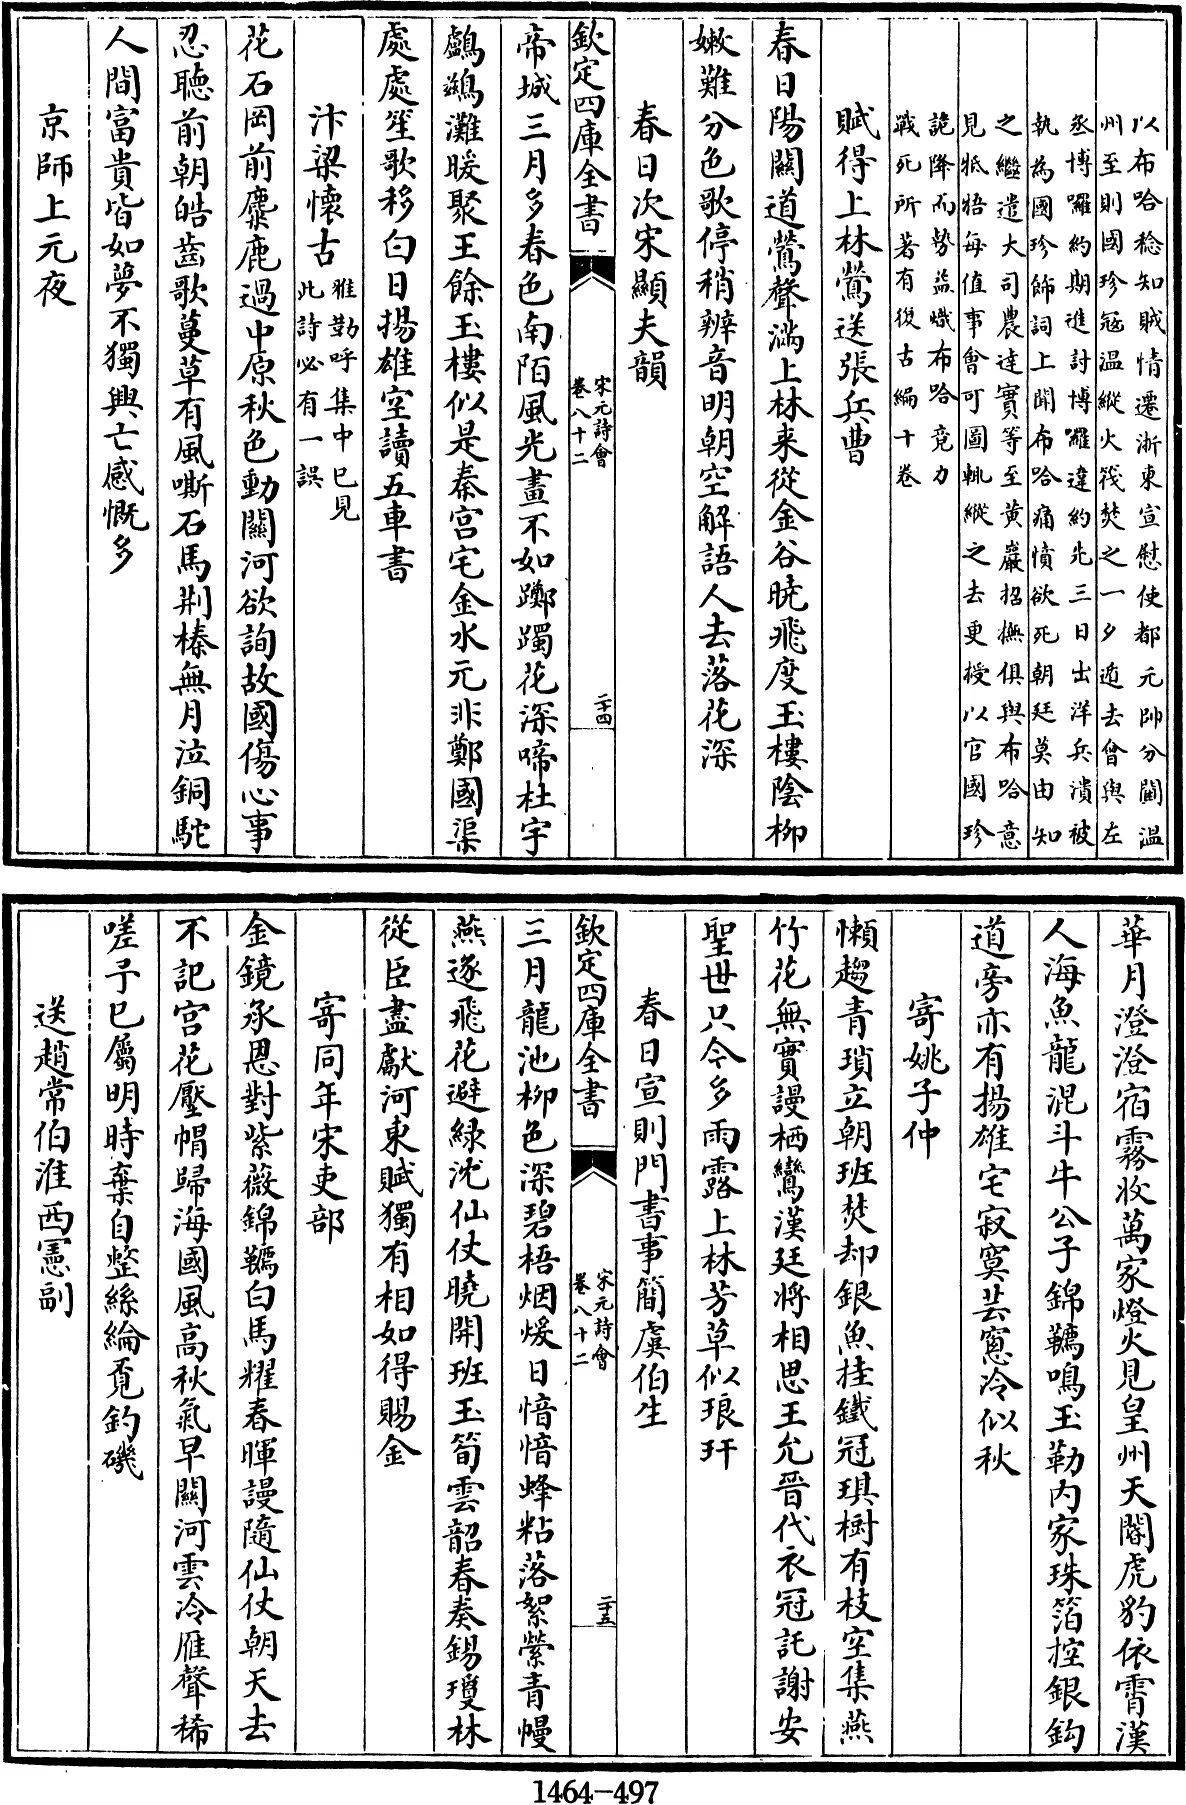 以布哈稔知賊情遷浙東宣慰使都元帥分閫温
州至則國珍冦温縱火筏焚之一夕遁去會與左
丞博囉約期進討博囉違約先三日出洋兵潰被
執為國珍飾詞上聞布哈痛憤欲死朝廷莫由知
之繼遣大司農達實等至黄巖招撫俱與布哈意
見牴牾每值事會可圖輒縱之去更授以官國珍
詭降而勢益熾布哈竟力
戰死所著有復古編十卷
賦得上林鶯送張兵曹
春日陽關道鶯聲滿上林来從金谷暁飛度玉樓陰栁
嫩難分色歌停稍辨音明朝空解語人去落花深
春日次宋顯夫韻
欽定四庫全書
宋元詩會
卷八十二
二十四
帝城三月多春色南陌風光畫不如躑躅花深啼杜宇
鸕鷀灘暖聚王餘玉樓似是秦宫宅金水元非鄭國渠
處處笙歌移白日揚雄空讀五車書
汴梁懷古
雅勤呼集中已見
此詩必有一誤
花石岡前麋鹿過中原秋色動關河欲詢故國傷心事
忍聽前朝皓齒歌蔓草有風嘶石馬荆榛無月泣銅駝
人間富貴皆如夢不獨興亡感慨多
京師上元夜
華月澄澄宿霧收萬家燈火見皇州天閽虎豹依霄漢
人海魚龍混斗牛公子錦韉鳴玉勒内家珠箔控銀鈎
道旁亦有揚雄宅寂寞芸窓冷似秋
寄姚子仲
懶趨青瑣立朝班焚却銀魚挂鐵冠琪樹有枝空集燕
竹花無實謾栖鸞漢廷將相思王允晉代衣冠託謝安
聖世只今多雨露上林芳草似琅玕
春日宣則門書事簡虞伯生
欽定四庫全書
宋元詩會
卷八十二
二十五
三月龍池柳色深碧梧烟煖日愔愔蜂粘落絮縈青幔
燕逐飛花避緑沈仙仗曉開班玉筍雲韶春奏錫瓊林
從臣盡獻河東賦獨有相如得賜金
寄同年宋吏部
金鏡承恩對紫薇錦韉白馬耀春暉謾隨仙仗朝天去
不記宫花壓帽歸海國風高秋氣早關河雲冷雁聲稀
嗟予已屬明時棄自整絲綸覓釣磯
送趙常伯淮西憲副
1464-497